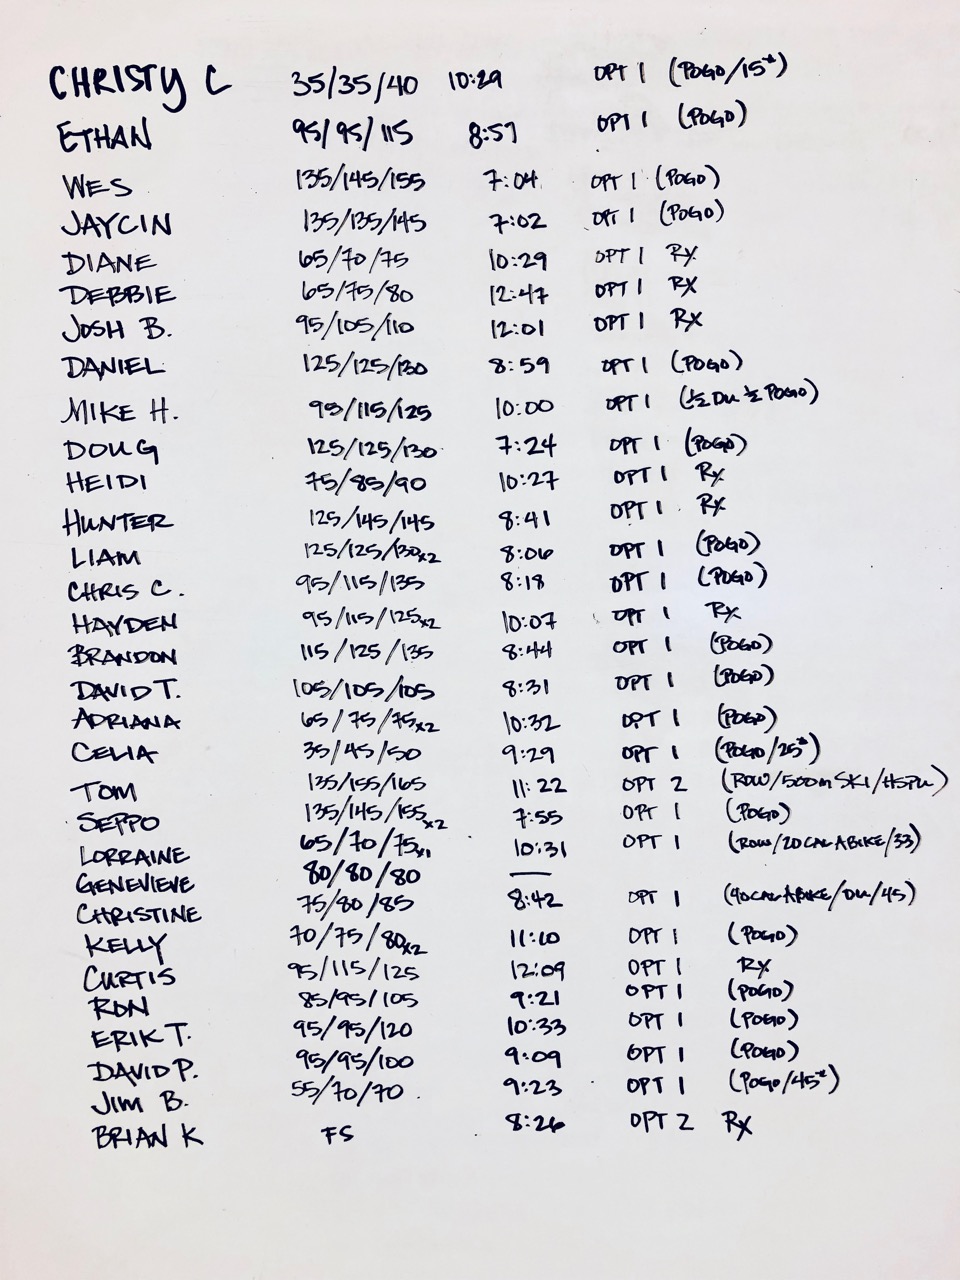 CHRISTY C 35/35/40 10:29 OPT 1 (POGO/15#)
ETHAN 95/95/115 8:57 OPT 1 (POGO)
WES 135/145/155 7:04 OPT 1 (POGO)
JAYCIN 135/135/145 7:02 OPT 1 (POGO)
DIANE 65/70/75 10:29 OPT 1 RX
DEBBIE 65/75/80 12:47 OPT 1 RX
JOSH B. 95/105/110 12:01 OPT 1 RX
DANIEL 125/125/130 8:59 OPT 1 (POGO)
MIKE H. 95/115/125 10:00 OPT 1 (½ DU ½ POGO)
DOUG 125/125/130 7:24 OPT 1 (POGO)
HEIDI 75/85/90 10:27 OPT 1 RX
HUNTER 125/145/145 8:41 OPT 1 RX
LIAM 125/125/130x2 8:06 OPT 1 (POGO)
CHRIS C. 95/115/135 8:18 OPT 1 (POGO)
HAYDEN 95/115/125x2 10:07 OPT 1 RX
BRANDON 115/125/135 8:44 OPT 1 (POGO)
DAVID T. 105/105/105 8:31 OPT 1 (POGO)
ADRIANA 65/75/75x2 10:32 OPT 1 (POGO)
CELIA 35/45/50 9:29 OPT 1 (POGO/25#)
TOM 135/155/165 11:22 OPT 2 (ROW/500M SKI/HSPU)
SEPPO 135/145/155x2 7:55 OPT 1 (POGO)
LORRAINE 65/70/75x1 10:31 OPT 1 (ROW/20 CAL ABIKE/33)
GENEVIEVE 80/80/80 —
CHRISTINE 75/80/85 8:42 OPT 1 (40 CAL ABIKE/DU/45)
KELLY 70/75/80x2 11:10 OPT 1 (POGO)
CURTIS 95/115/125 12:09 OPT 1 RX
RON 85/95/105 9:21 OPT 1 (POGO)
ERIK T. 95/95/120 10:33 OPT 1 (POGO)
DAVID P. 95/95/100 9:09 OPT 1 (POGO)
JIM B. 55/70/70 9:23 OPT 1 (POGO/45#)
BRIAN K FS 8:26 OPT 2 RX